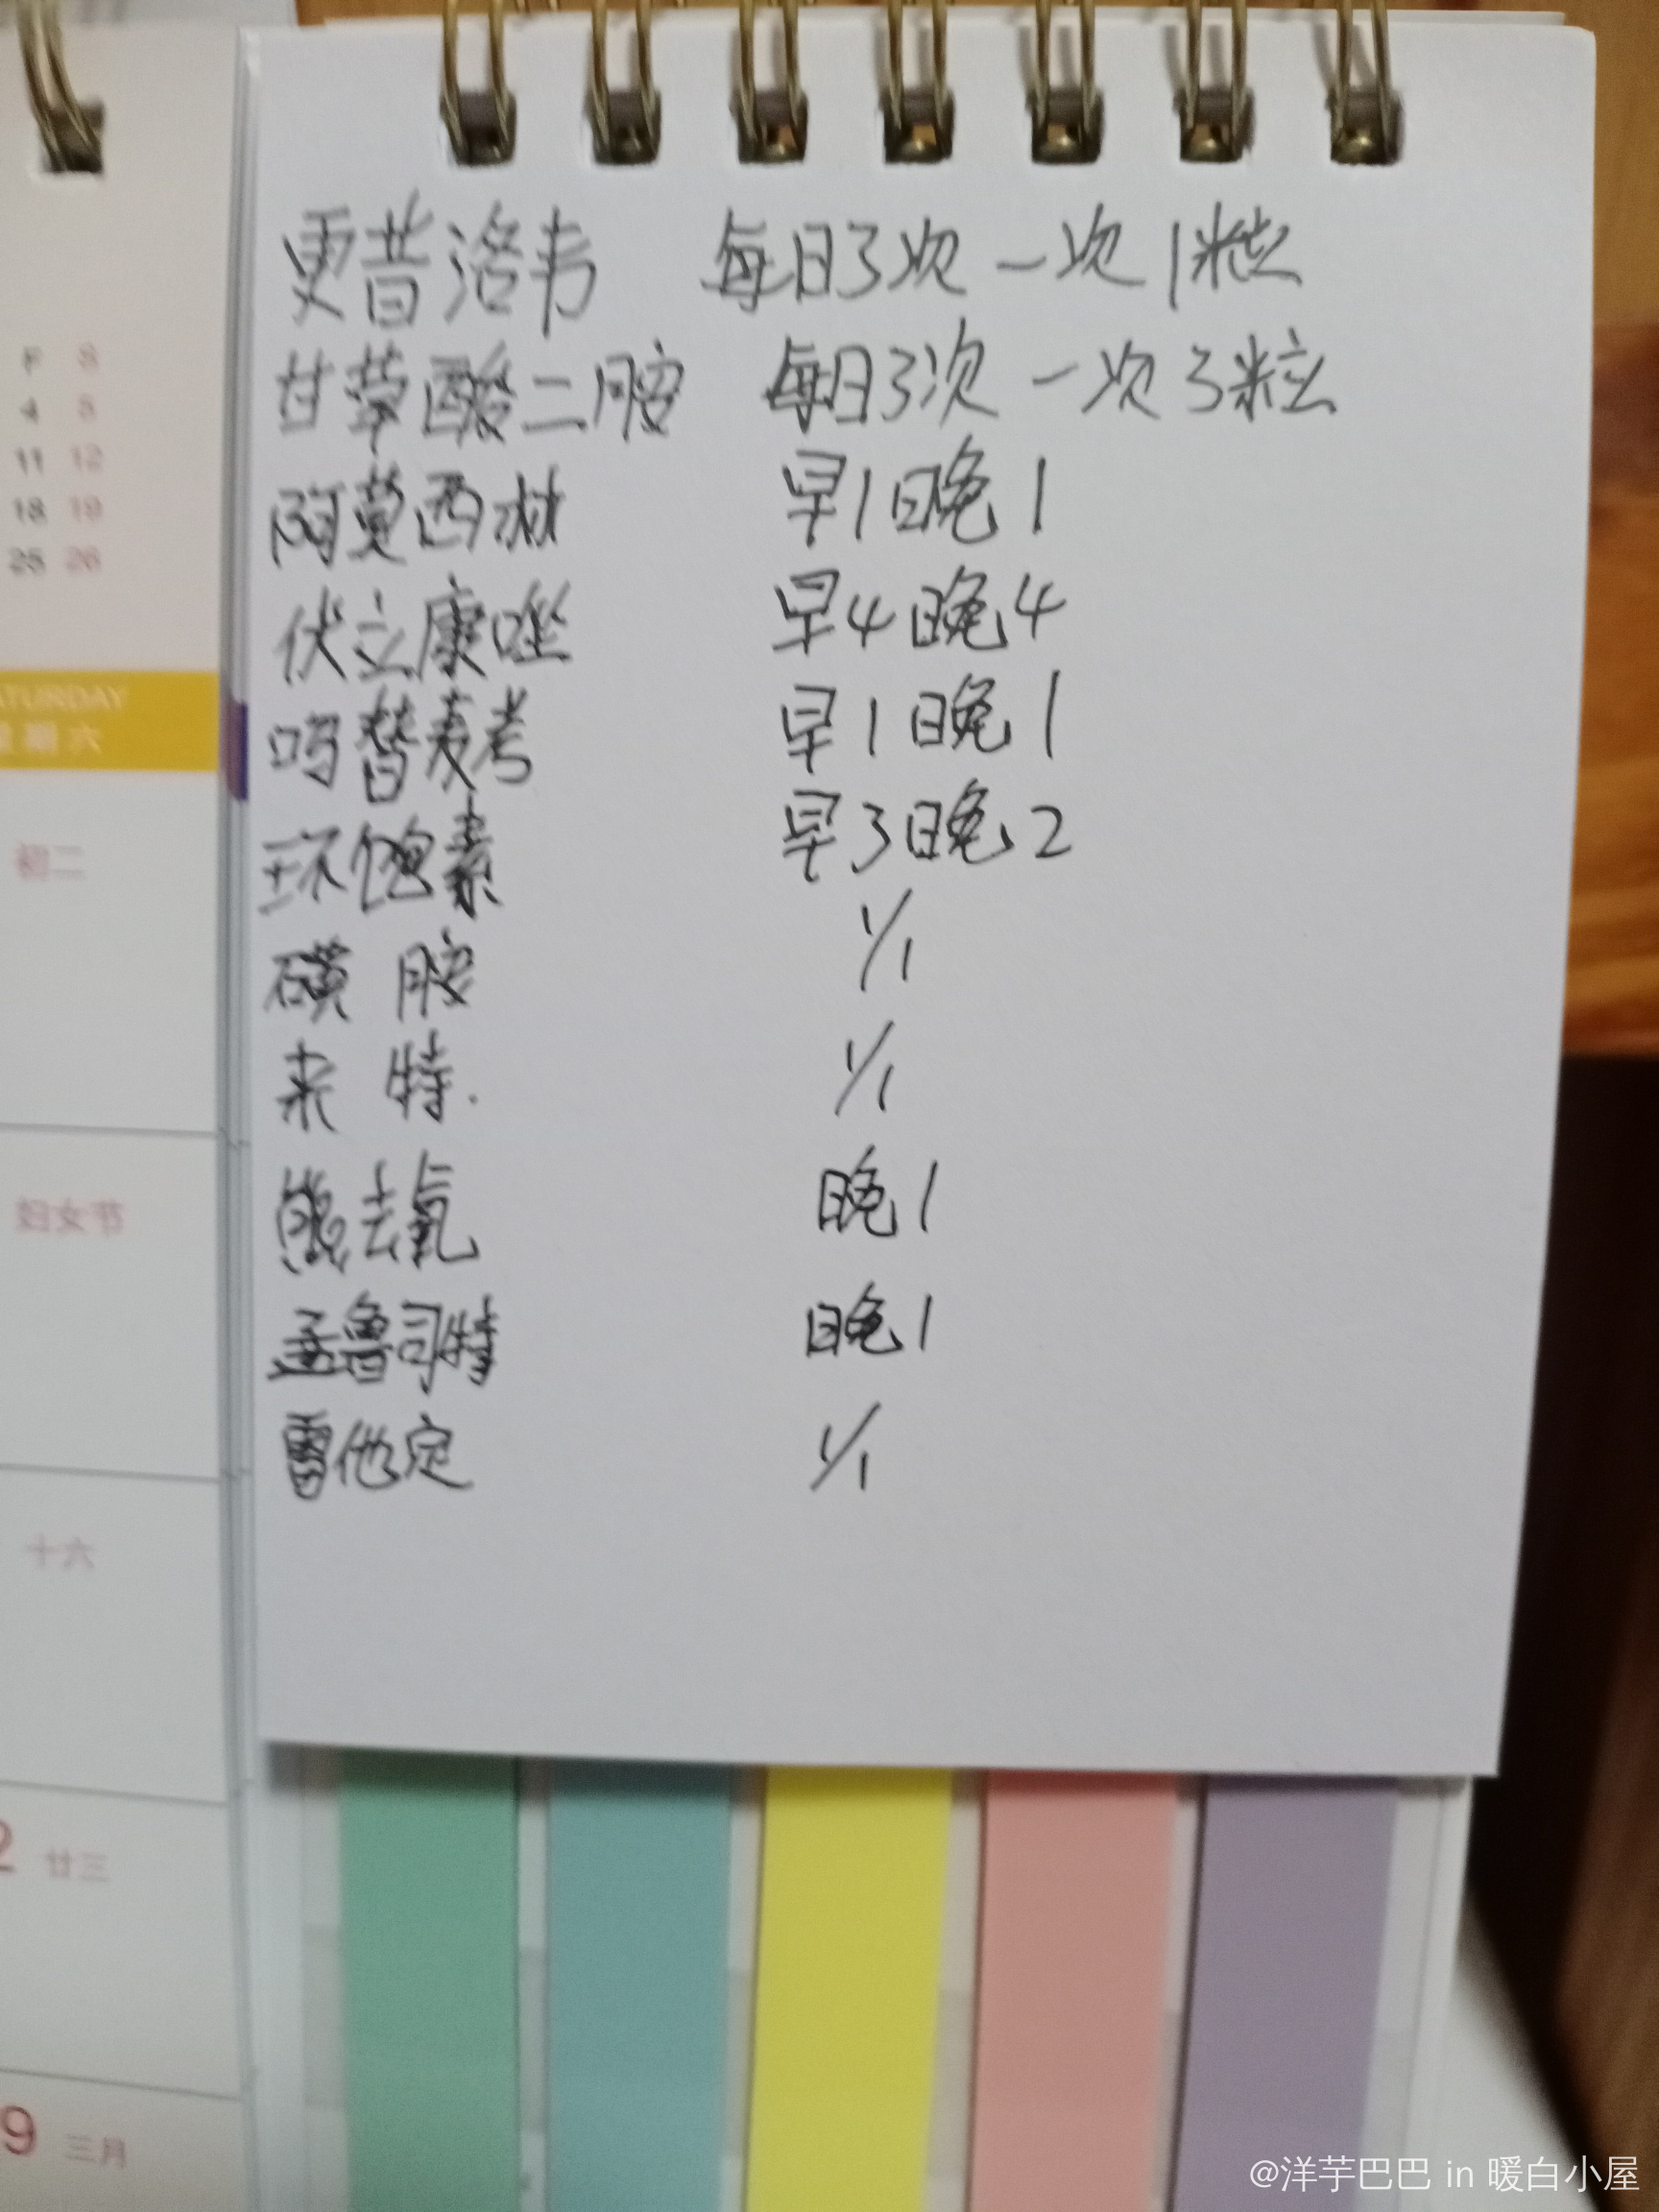 更昔洛韦 每日3次 一次1粒
甘草酸二胺 每日3次 一次3粒
阿莫西林 早1晚1
伏立康唑 早4晚4
吗替麦考 早1晚1
环饱素 早3晚2
磺胺 1/1
来特. 1/1
熊去氧 晚1
孟鲁司特 晚1
雷他定 1/1
F S
4 5
11 12
18 19
25 26
ATURDAY
星期六
初二
妇女节
十六
2 廿三
9 三月
@洋芋巴巴 in 暖白小屋